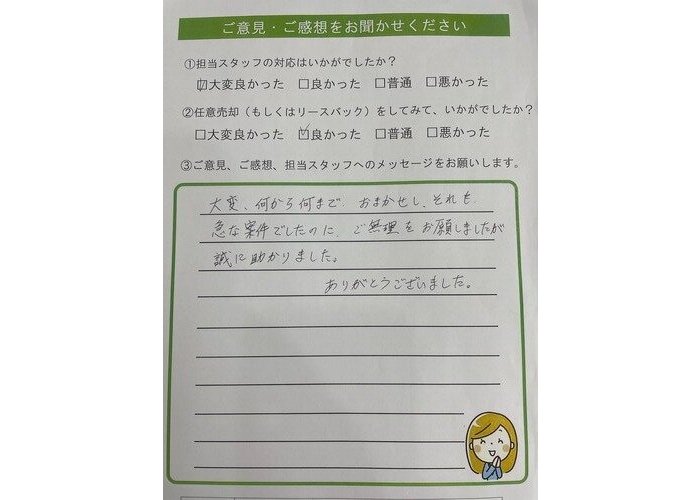 ご意見・ご感想をお聞かせください
①担当スタッフの対応はいかがでしたか？
☑大変良かった □良かった □普通 □悪かった
②任意売却（もしくはリースバック）をしてみて、いかがでしたか？
□大変良かった ☑良かった □普通 □悪かった
③ご意見、ご感想、担当スタッフへのメッセージをお願いします。
大変、何から何まで おまかせし、それも
急な案件でしたのに、ご無理をお願いしましたが
誠に助かりました。
ありがとうございました。